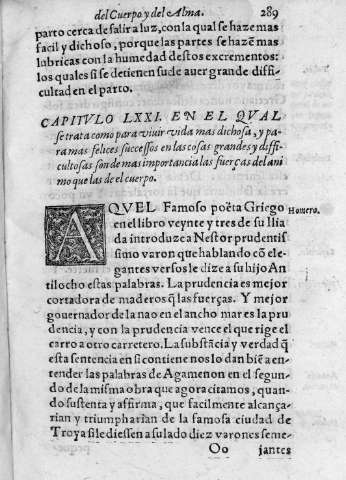 del Cuerpo y del Alma. 289
parto cerca de salir a luz, con la qual se haze mas
facil y dichoso, porque las partes se hazẽ mas
lubricas con la humedad destos excrementos:
los quales si se detienen sude auer grande diffi-
cultad en el parto.
CAPITVLO LXXI. EN EL QVAL
se trata como para viuir vida mas dichosa, y pa-
ra mas felices successos en las cosas grandes y diffi-
cultosas son de mas importancia las fuerças del ani
mo que las de el cuerpo.
AQVEL Famoso poëta Griego Homero.
en el libro veynte y tres de su Ilia
da introduze a Nestor prudentis
simo varon que hablando cõ ele-
gantes versos le dize a su hijo An
tilocho estas palabras. La prudencia es mejor
cortadora de maderos q̃ las fuerças. Y mejor
gouernador de la nao en el ancho mar es la pru
dencia, y con la prudencia vence el que rige el
carro a otro carretero. La substãcia y verdad q̃
esta sentencia en si contiene nos lo dan biẽ a en-
tender las palabras de Agamenon en el segun-
do de la misma obra que agora citamos, quan-
do sustenta y affirma, que facilmente alcança-
rian y triumpharian de la famosa ciudad de
Troya si le diessen a su lado diez varones seme-
Oo jantes